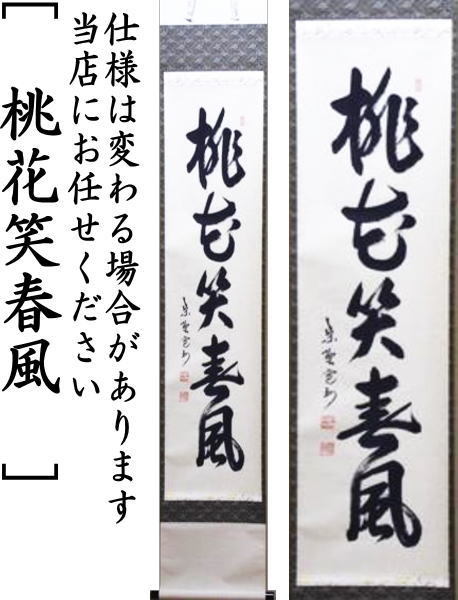 仕様は変わる場合があります
当店にお任せください
[桃花笑春風]
桃花笑春風
桃花笑春風